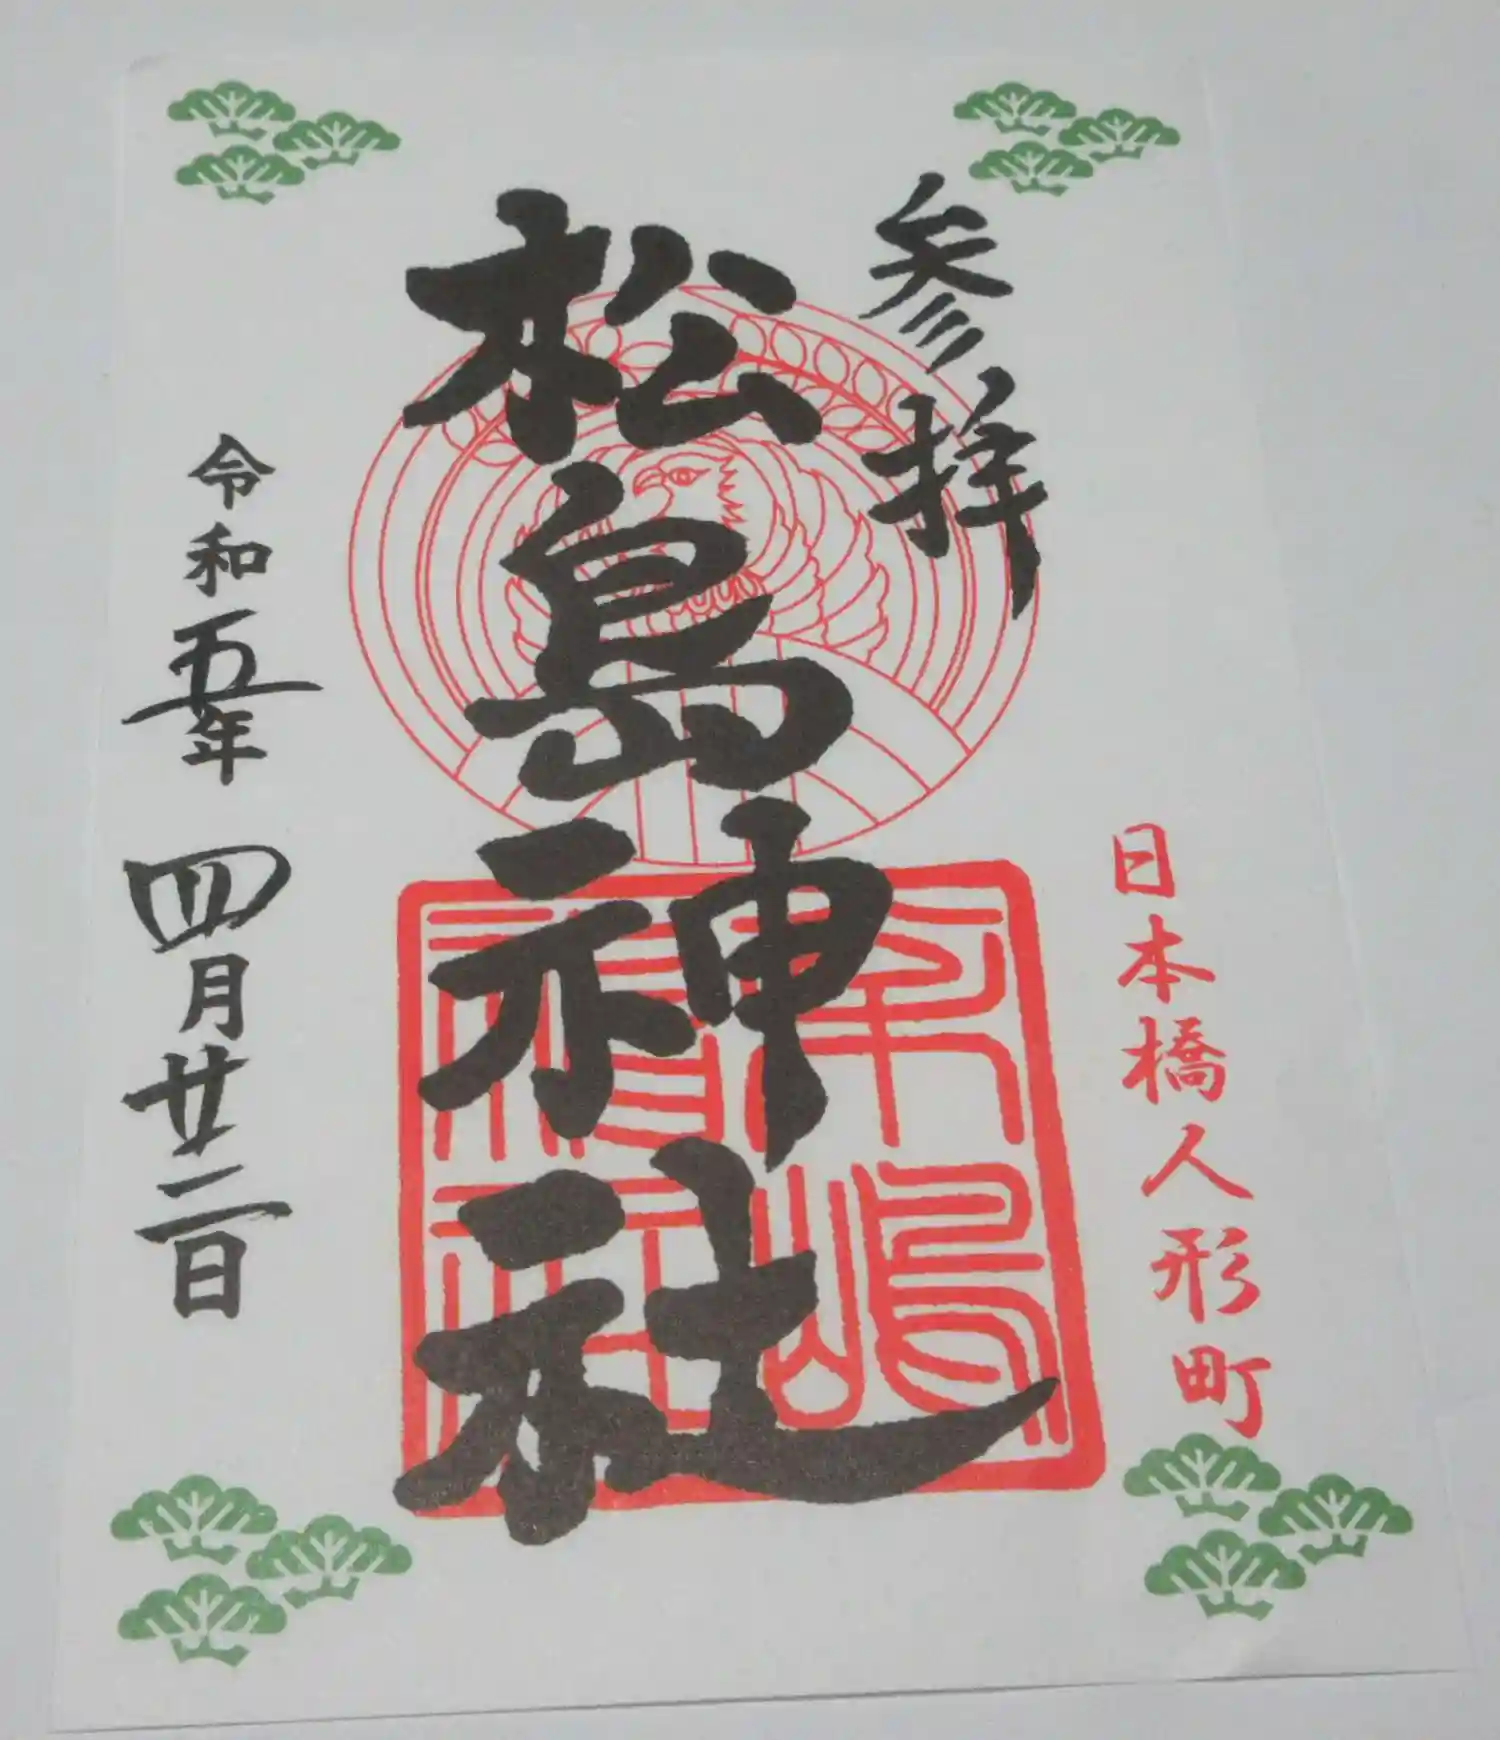 参拝
日本橋人形町
松島神社
令和五年四月廿二日